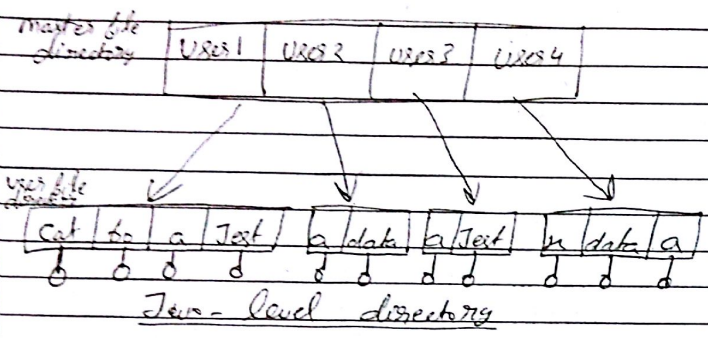 master file
directory
User1 User2 User3 User4
user file
directory
Cat bo a Test a data a Test x data a
Two-level directory